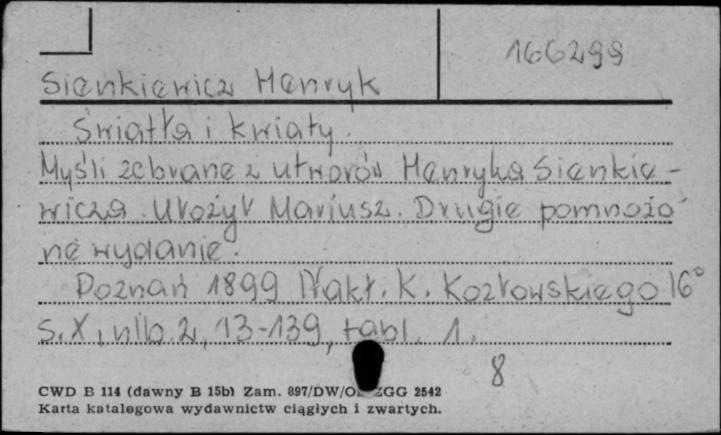 166299
Sienkiewicz Henryk
Światła i kwiaty.
Myśli zebrane z utworów Henryka Sienkie-
wicza. Ułożył Mariusz. Drugie pomnożo
ne wydanie.
Poznań 1899 Nakł. K. Kozłowskiego 16°
S. X, nlb. 2, 13-139, tabl. 1.
8
CWD B 114 (dawny B 15b) Zam. 897/DW/O ZGG 2542
Karta katalogowa wydawnictw ciągłych i zwartych.